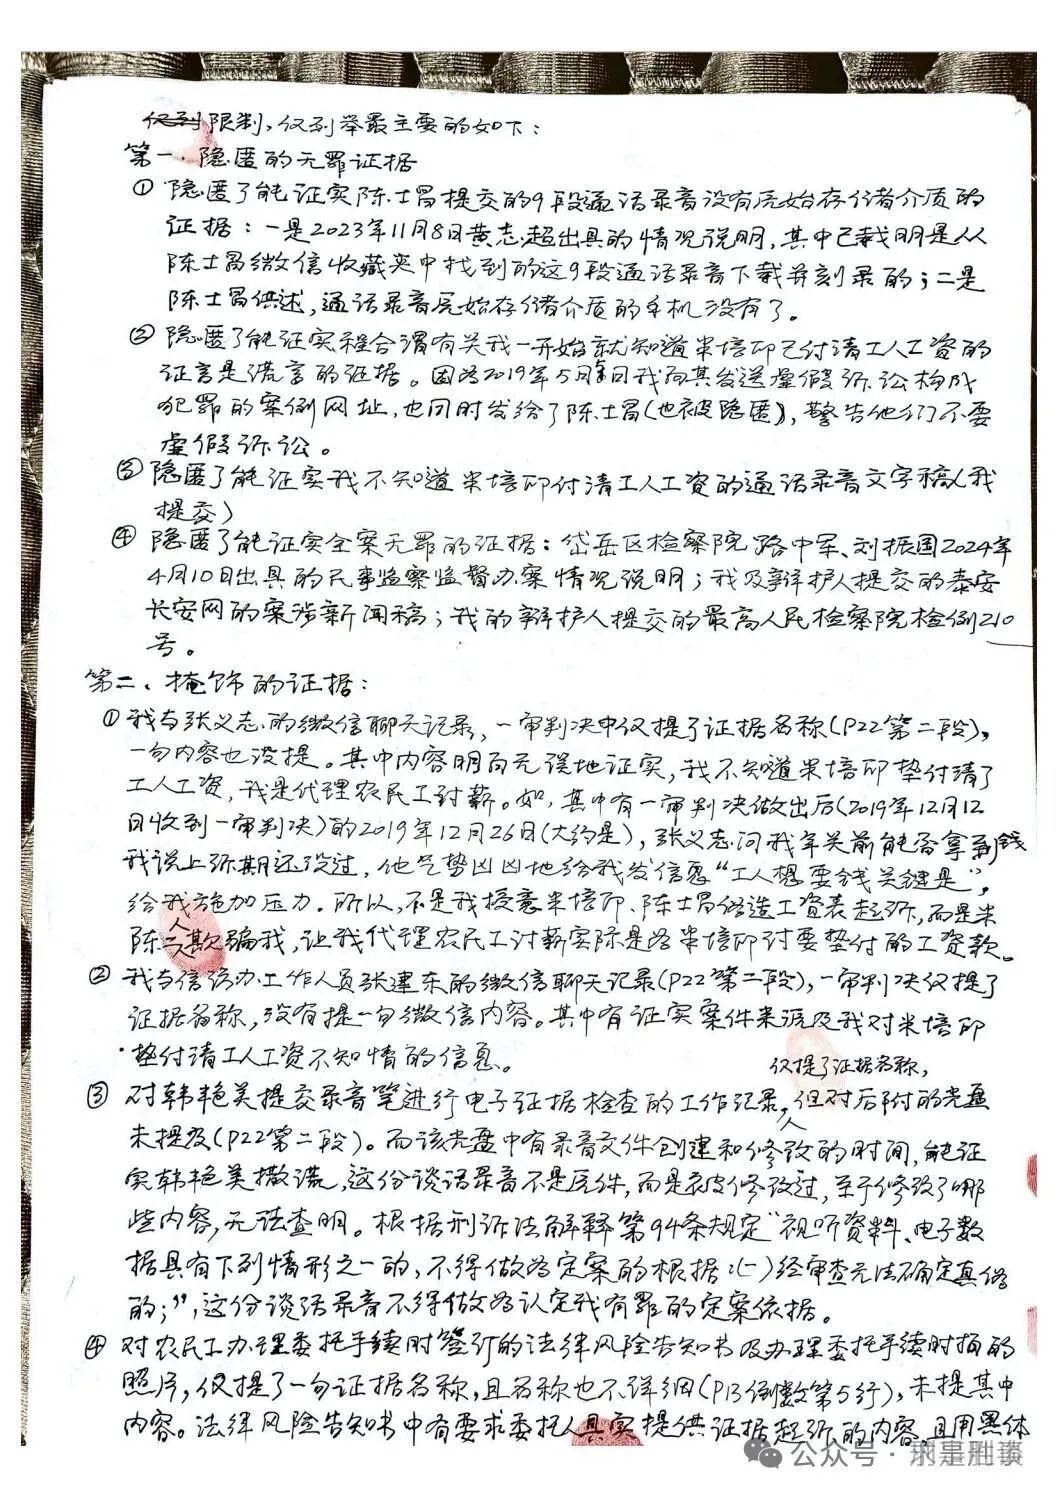 限制，仅列举最主要的如下：
第一、隐匿的无罪证据
① 隐匿了能证实陈士昌提交的9段通话录音没有原始存储介质的
证据：一是2023年11月8日黄志超出具的情况说明，其中已载明是从
陈士昌微信收藏夹中找到的这9段通话录音下载并刻录的；二是
陈士昌供述，通话录音原始存储介质的手机没有了。
② 隐匿了能证实程合谓有关我一开始就知道米培印已付清工人工资的
证言是谎言的证据。因为2019年5月日我向其发送虚假诉讼构成
犯罪的案例网址，也同时发给了陈士昌（也被隐匿），警告他们不要
虚假诉讼。
③ 隐匿了能证实我不知道米培印付清工人工资的通话录音文字稿（我
提交）
④ 隐匿了能证实全案无罪的证据：岱岳区检察院路中军、刘振国2024年
4月10日出具的民事监察监督办案情况说明；我及辩护人提交的泰安
长安网的案涉新闻稿；我的辩护人提交的最高人民检察院检例210
号。
第二、掩饰的证据：
① 我与张义志的微信聊天记录，一审判决中仅提了证据名称（P22第二段），
一句内容也没提。其中内容明白无误地证实，我不知道米培印垫付清了
工人工资，我是代理农民工讨薪。如，其中有一审判决做出后（2019年12月12
日收到一审判决）的2019年12月26日（大约是），张义志问我年关前能否拿到钱
我说上诉期还没过，他气势凶凶地给我发信息“工人想要钱关键是”，
给我施加压力。所以，不是我授意米培印、陈士昌伪造工资表起诉，而是米
陈二人欺骗我，让我代理农民工讨薪实际是为米培印讨要垫付的工资款。
② 我与信访办工作人员张建东的微信聊天记录（P22第二段），一审判决仅提了
证据名称，没有提一句微信内容。其中有证实案件来源及我对米培印
垫付清工人工资不知情的信息。
仅提了证据名称，
③ 对韩艳美提交录音笔进行电子证据检查的工作记录，但对后附的光盘
未提及（P22第二段）。而该光盘中有录音文件创建和修改的时间，能证
实韩艳美撒谎，这份谈话录音不是原件，而是被修改过，至于修改了哪
些内容，无法查明。根据刑诉法解释第94条规定“视听资料、电子数
据具有下列情形之一的，不得做为定案的根据：（一）经审查无法确定真伪
的；”，这份谈话录音不得做为认定我有罪的定案依据。
④ 对农民工办理委托手续时签订的法律风险告知书及办理委托手续时拍的
照片，仅提了一句证据名称，且名称也不详细（P13倒数第5行），未提其中
内容。法律风险告知书中有要求委托人真实提供证据起诉的内容，且用黑体
公众号·刑事胜谈